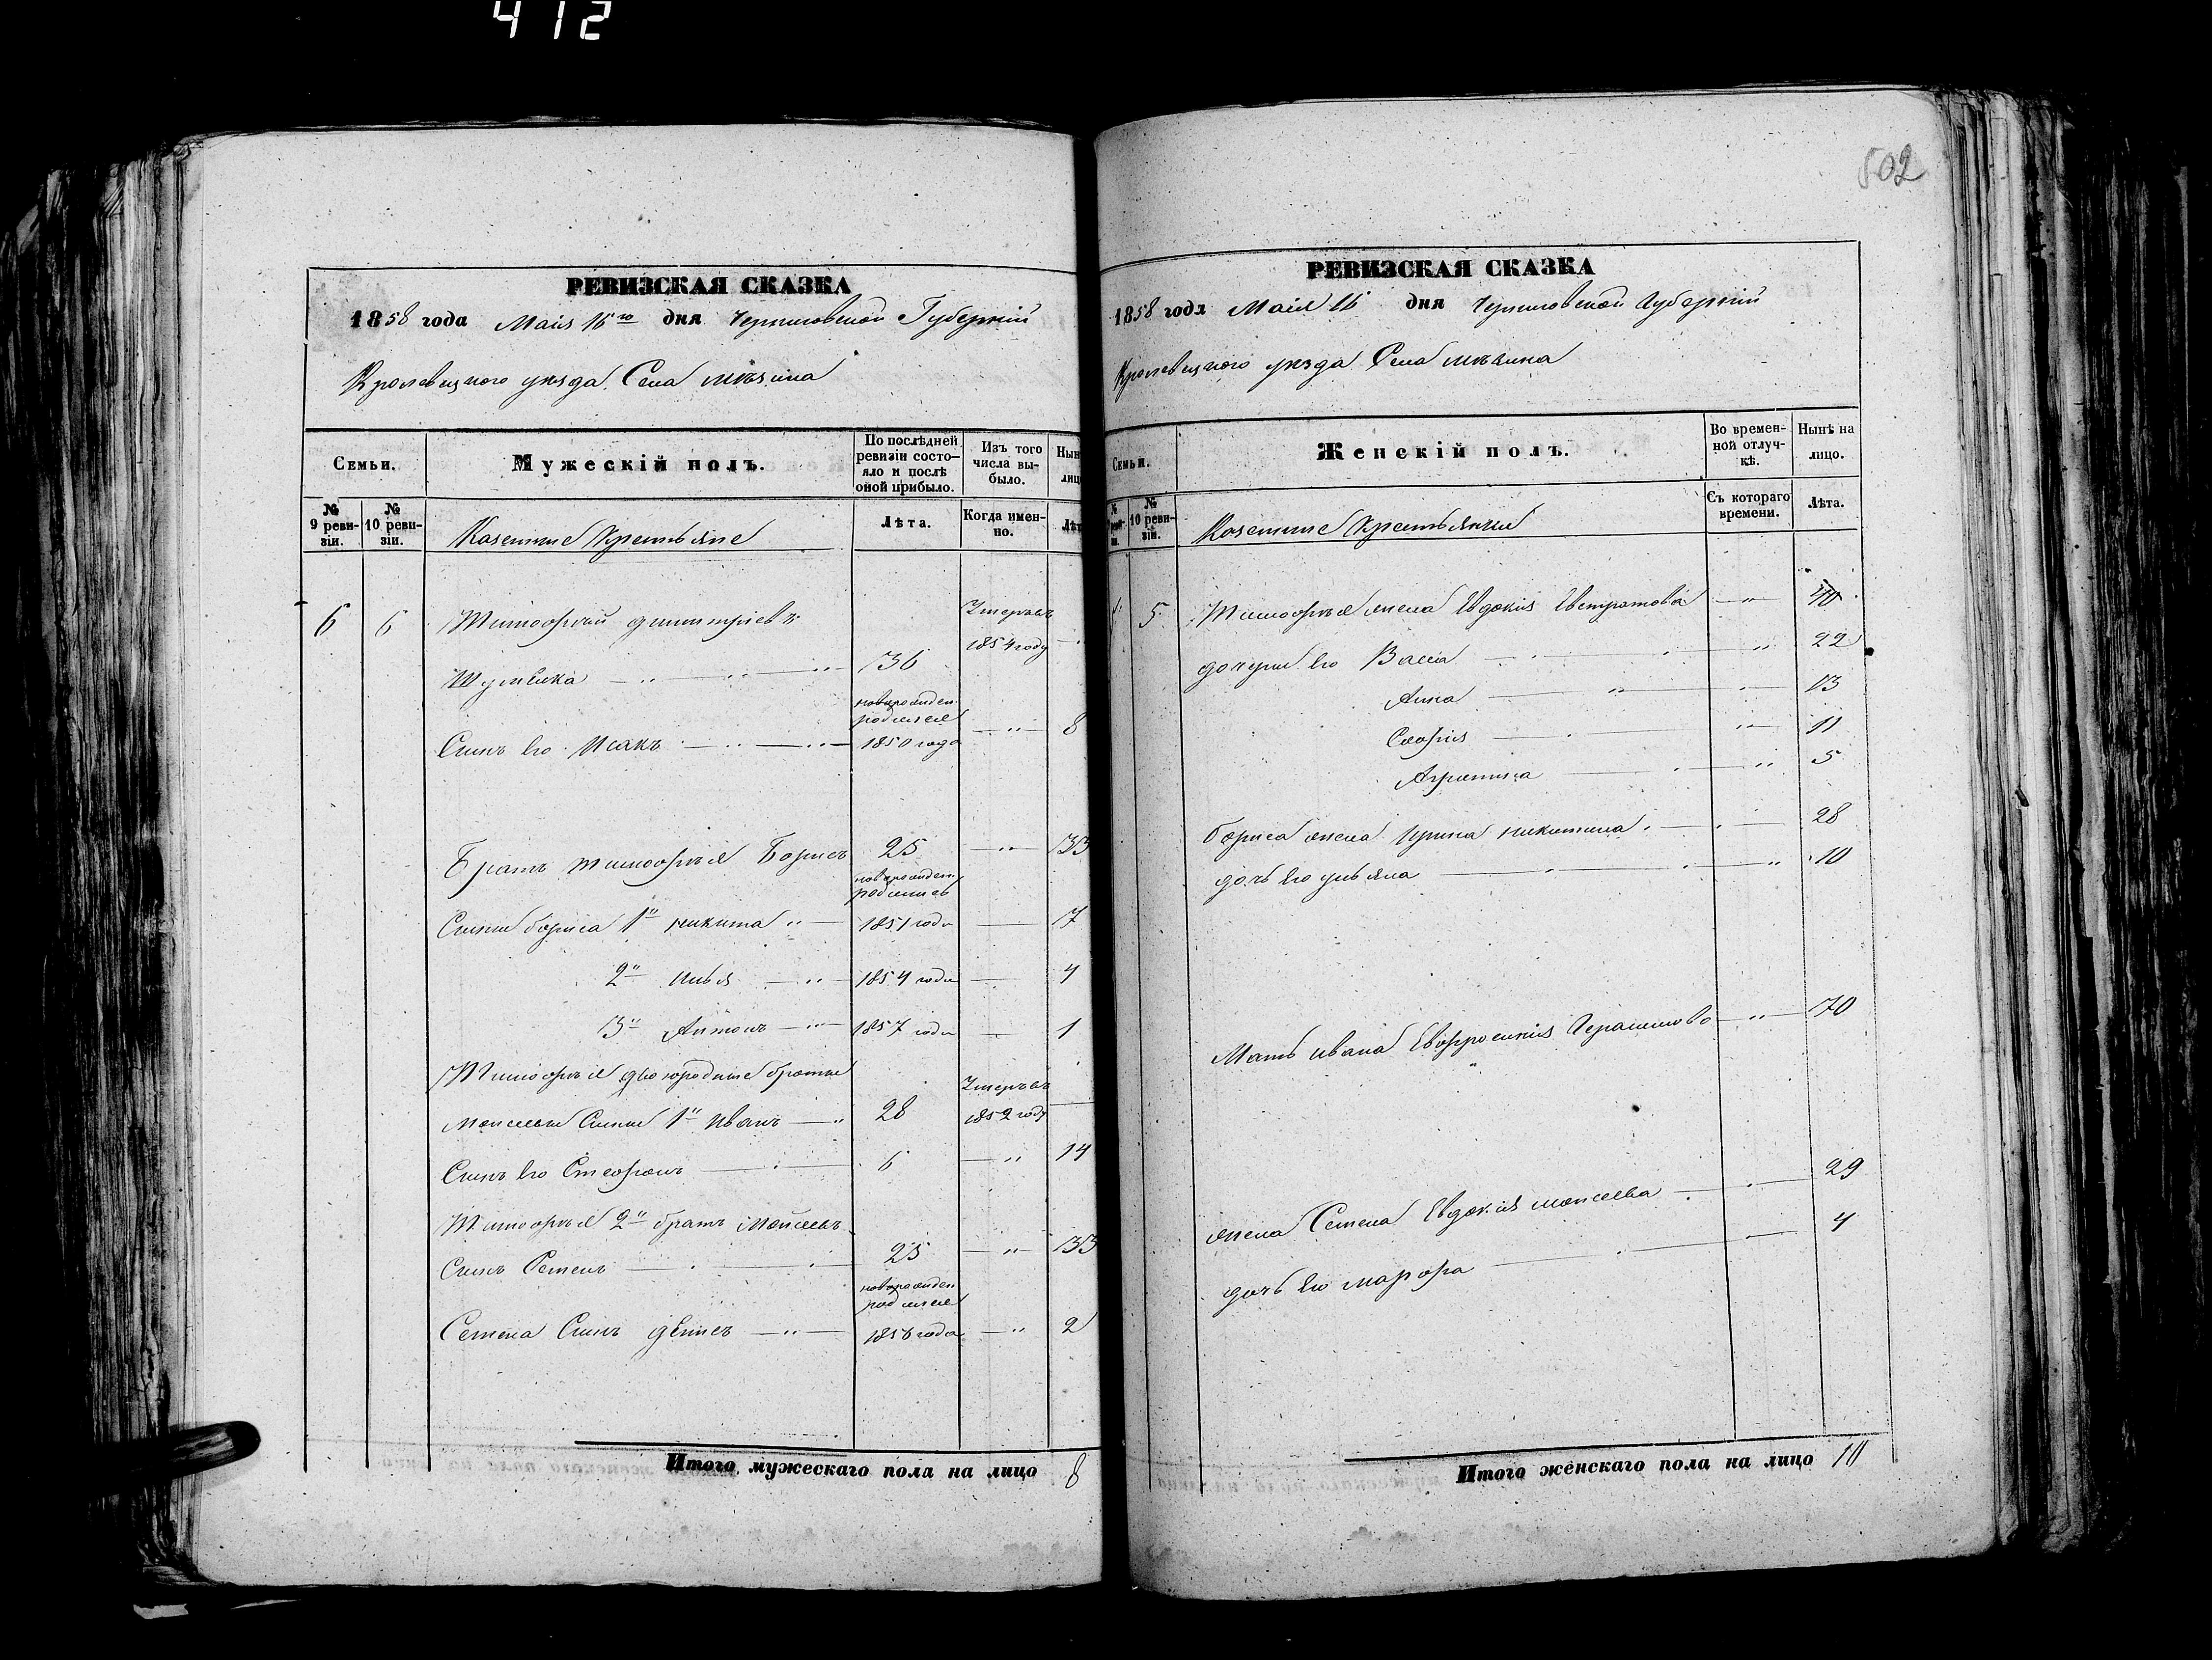 412
502
РЕВИЗСКАЯ СКАЗКА
1858 года Маія 16го дня Черниговской Губерніи
Кролевецкого уезда Села мезина
Семьи.
Мужескій полъ.
По послѣдней ревизіи состояло и послѣ оной прибыло.
Изъ того числа выбыло.
№ 9 ревизіи.
№ 10 ревизіи.
Казенные Крестьяне
Лѣта.
Когда именно.
6 6 Тимофей дмитріевъ Умеръвъ
1854 году
36
новорожден
родился
Сынъ его Исакъ 1850 года 8
Братъ тимофея Борисъ 25 33
новорожден
родились
Сыны бориса 1й никита 1851 года 7
2й илья 1854 года 4
3й Антонъ 1857 года 1
Тимофея двоюродные братья
Умеръвъ
Моисеевы Сыны 1й Иванъ 28 1852 году
Сынъ его Стефанъ 6 14
Тимофея 2й братъ Моисеевъ
Сынъ Семенъ 25 33
новорожден
родился
Семена Сынъ 1856 года 2
Итого мужескаго пола на лицо 8
РЕВИЗСКАЯ СКАЗКА
1858 года Маія 16 дня Черниговской Губерніи
Кролевецкого уезда Села мезина
Семьи.
Женскій полъ.
Во временной отлучкѣ.
Нынѣ на лицо.
№ 10 ревизіи.
Казенные Крестьянки
Съ котораго времени.
Лѣта.
5 Тимофея жена Евдокія Евстратова 40
дочери его Васса 22
Анна 13
Софія 11
Агрипина 5
бориса жена Ирина никитина 28
дочь его ульяна 10
Мать ивана Евфросинія Герасимова 70
жена Семена Евдокія моисеева 29
дочь его марфа 4
Итого женскаго пола на лицо 10